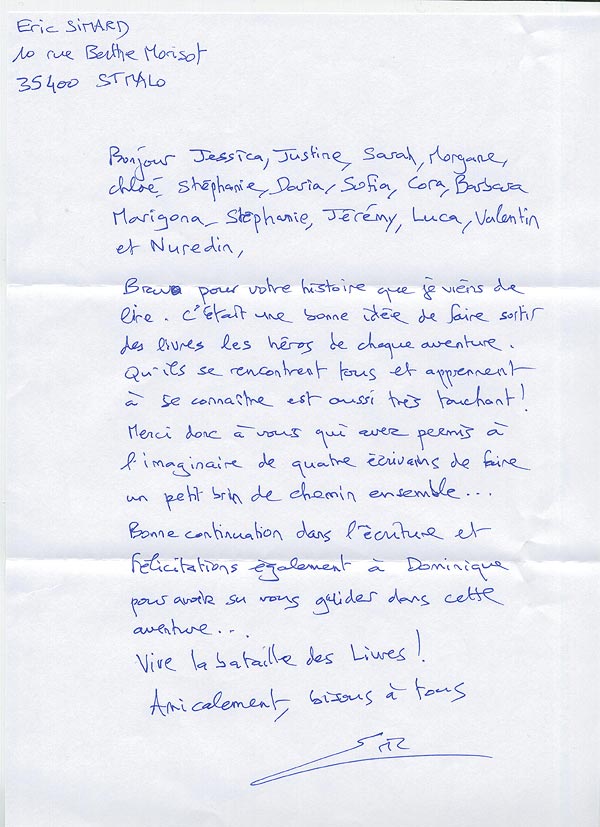 Eric SIMARD
10 rue Berthe Morisot
35400 ST MALO
Bonjour Jessica, Justine, Sarah, Morgane,
chloé, Stéphanie, Daria, Sofia, Cora, Barbara
Marigona, Stéphanie, Jérémy, Luca, Valentin
et Nuredin,
Bravo pour votre histoire que je viens de
lire. C'était une bonne idée de faire sortir
des livres les héros de chaque aventure.
Qu'ils se rencontrent tous et apprennent
à se connaître est aussi très touchant !
Merci donc à vous qui avez permis à
l'imaginaire de quatre écrivains de faire
un petit brin de chemin ensemble...
Bonne continuation dans l'écriture et
félicitations également à Dominique
pour avoir su vous guider dans cette
aventure...
Vive la bataille des Livres !
Amicalement, bisous à tous
Eric